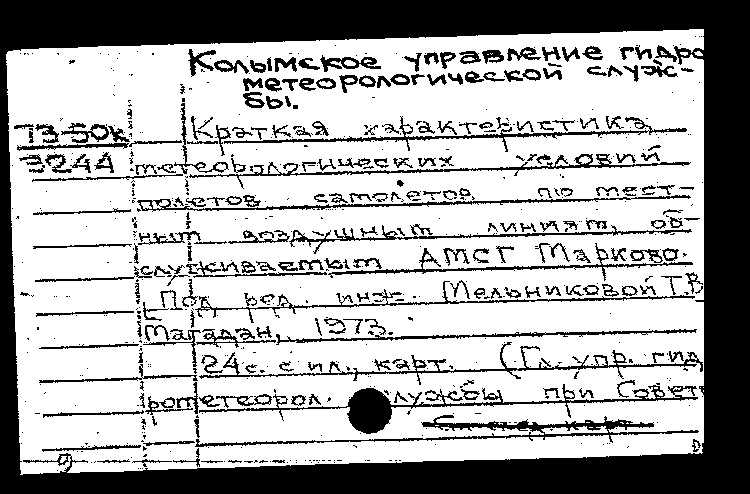 Колымское управление гидро
метеорологической служ-
бы.
73-50к Краткая характеристика
3244 метеорологических условий
полетов самолетов по мест-
ным воздушным линиям, об-
служиваемым АМСГ Марково.
Под ред. инж. Мельниковой Т.В
Магадан, 1973.
24с. с ил., карт. (Гл. упр. гид
рометеорол. службы при Совет
См. след. карт.